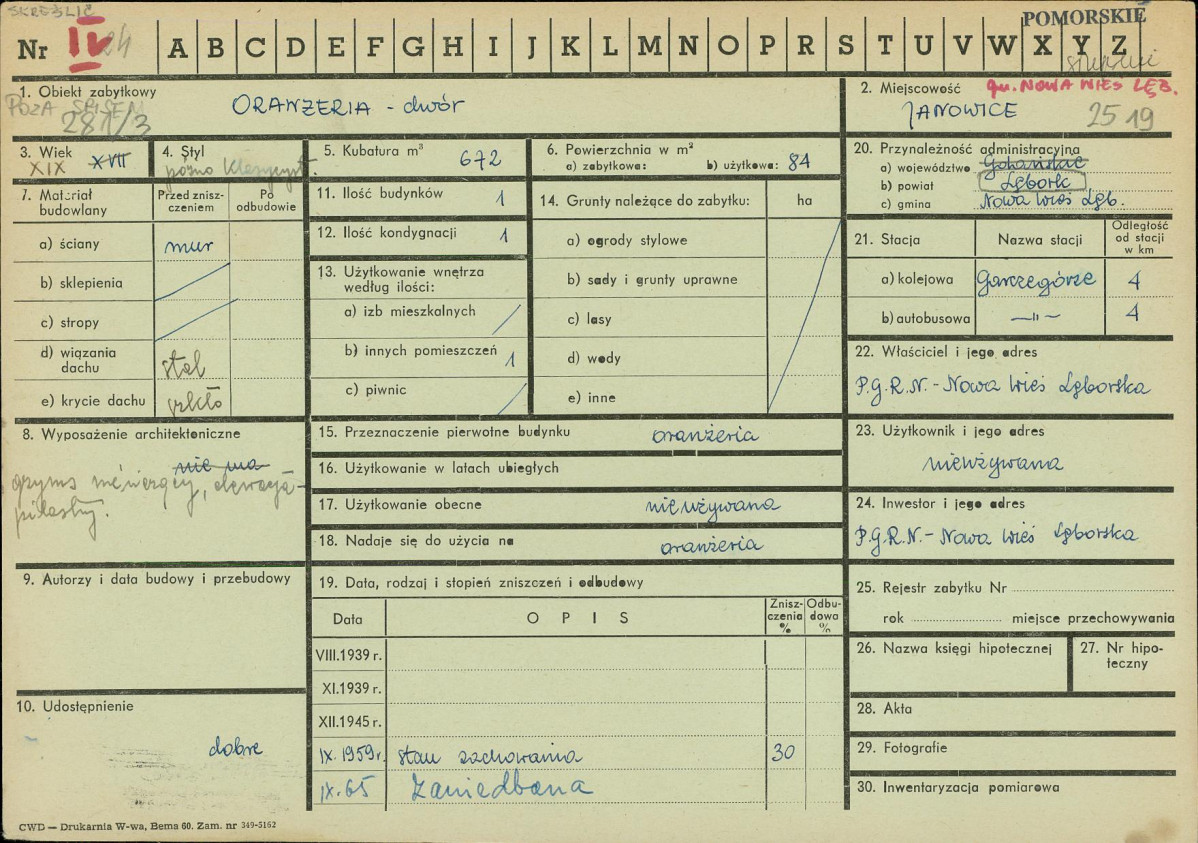 SKREŚLIĆ
POMORSKIE
Nr IV 24 A B C D E F G H I J K L M N O P R S T U V W X Y Z
słupski
1. Obiekt zabytkowy
ORANŻERIA - dwór
POZA SPISEM
281/3
2. Miejscowość gm. NOWA WIEŚ LĘB.
JANOWICE 25 19
3. Wiek XVII
XIX
4. Styl
późno klasycyst.
5. Kubatura m³ 672
6. Powierzchnia w m²
a) zabytkowa: b) użytkowa: 84
20. Przynależność administracyjna
a) województwo Gdańskie
b) powiat Lębork
c) gmina Nowa Wieś Lęb.
7. Materiał budowlany
Przed zniszczeniem
Po odbudowie
a) ściany mur
b) sklepienia
c) stropy
d) wiązania dachu stal
e) krycie dachu szkło
11. Ilość budynków 1
12. Ilość kondygnacji 1
13. Użytkowanie wnętrza
według ilości:
a) izb mieszkalnych
b) innych pomieszczeń 1
c) piwnic
14. Grunty należące do zabytku: ha
a) ogrody stylowe
b) sady i grunty uprawne
c) lasy
d) wody
e) inne
21. Stacja Nazwa stacji Odległość od stacji w km
a) kolejowa Garczegórze 4
b) autobusowa —"— 4
22. Właściciel i jego adres
P.G.R.N. - Nowa Wieś Lęborska
8. Wyposażenie architektoniczne
nie ma
gzyms wieńczący, elewacja-
pilastry.
15. Przeznaczenie pierwotne budynku oranżeria
16. Użytkowanie w latach ubiegłych
17. Użytkowanie obecne nieużywana
18. Nadaje się do użycia na oranżeria
23. Użytkownik i jego adres
nieużywana
24. Inwestor i jego adres
P.G.R.N. - Nowa Wieś Lęborska
9. Autorzy i data budowy i przebudowy
19. Data, rodzaj i stopień zniszczeń i odbudowy
Data OPIS Zniszczenia % Odbudowa %
VIII.1939 r.
XI.1939 r.
XII.1945 r.
IX.1959r. stan zachowania 30
IX.65 Zaniedbana
25. Rejestr zabytku Nr
rok miejsce przechowywania
26. Nazwa księgi hipotecznej
27. Nr hipoteczny
28. Akta
29. Fotografie
30. Inwentaryzacja pomiarowa
10. Udostępnienie
dobre
CWD — Drukarnia W-wa, Bema 60. Zam. nr 349-5162